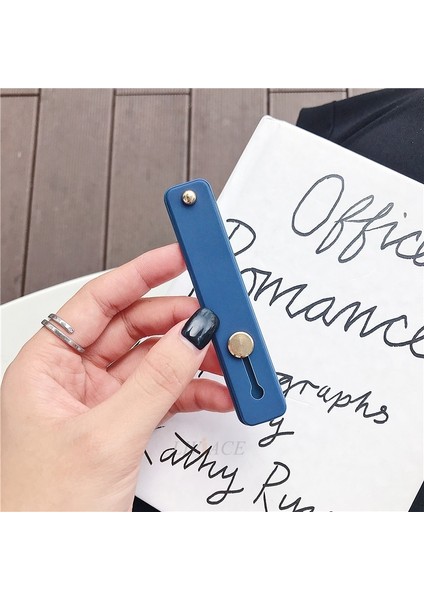 Office
Romance
ographs
y
Kathy Ry
ACE